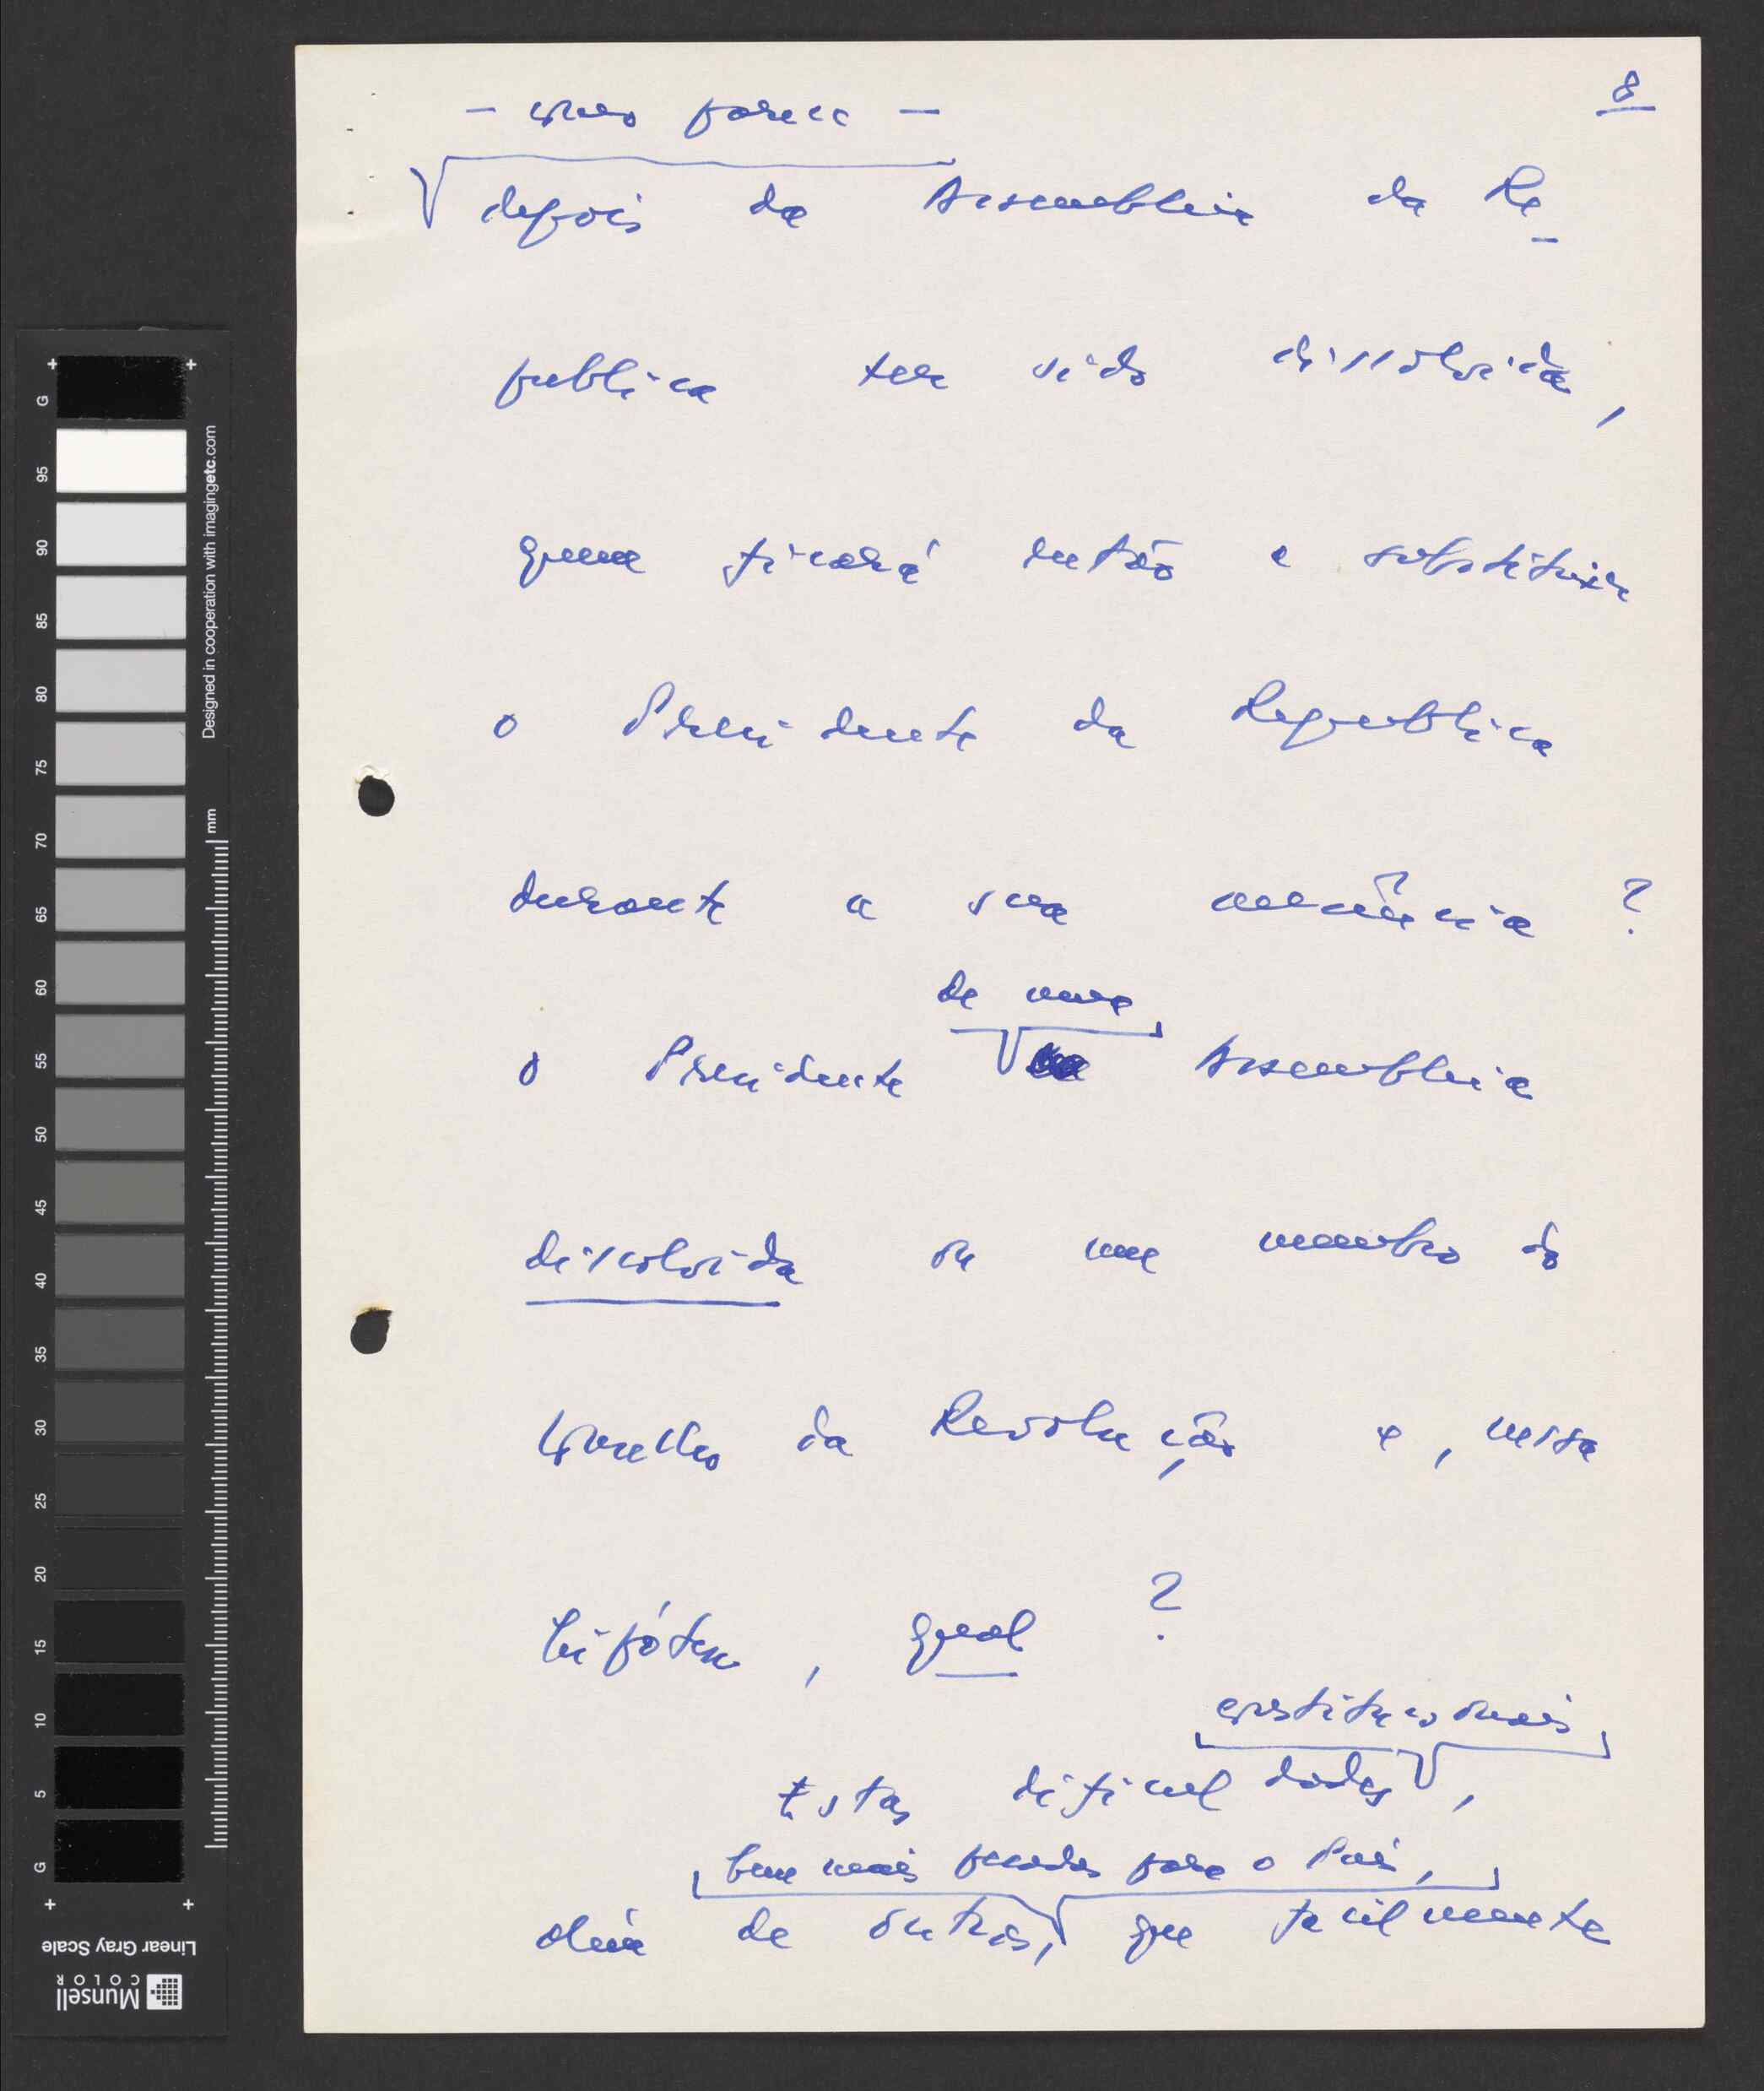 8
- como parece -
depois da Assembleia da Re-
publica ter sido dissolvida,
quem ficará então a substituir
o Presidente da Republica
durante a sua ausência ?
de uma
o Presidente Assembleia
dissolvida ou um membro do
Conselho da Revolução e, nessa
hipótese, qual ?
constitucionais
Estas dificuldades,
bem mais pesadas para o País,
além de outras, que facilmente
G 95 90 85 80 75 70 65 60 55 50 45 40 35 30 25 20 15 10 5 G
mm
Designed in cooperation with imagingetc.com
Linear Gray Scale
Munsell
COLOR